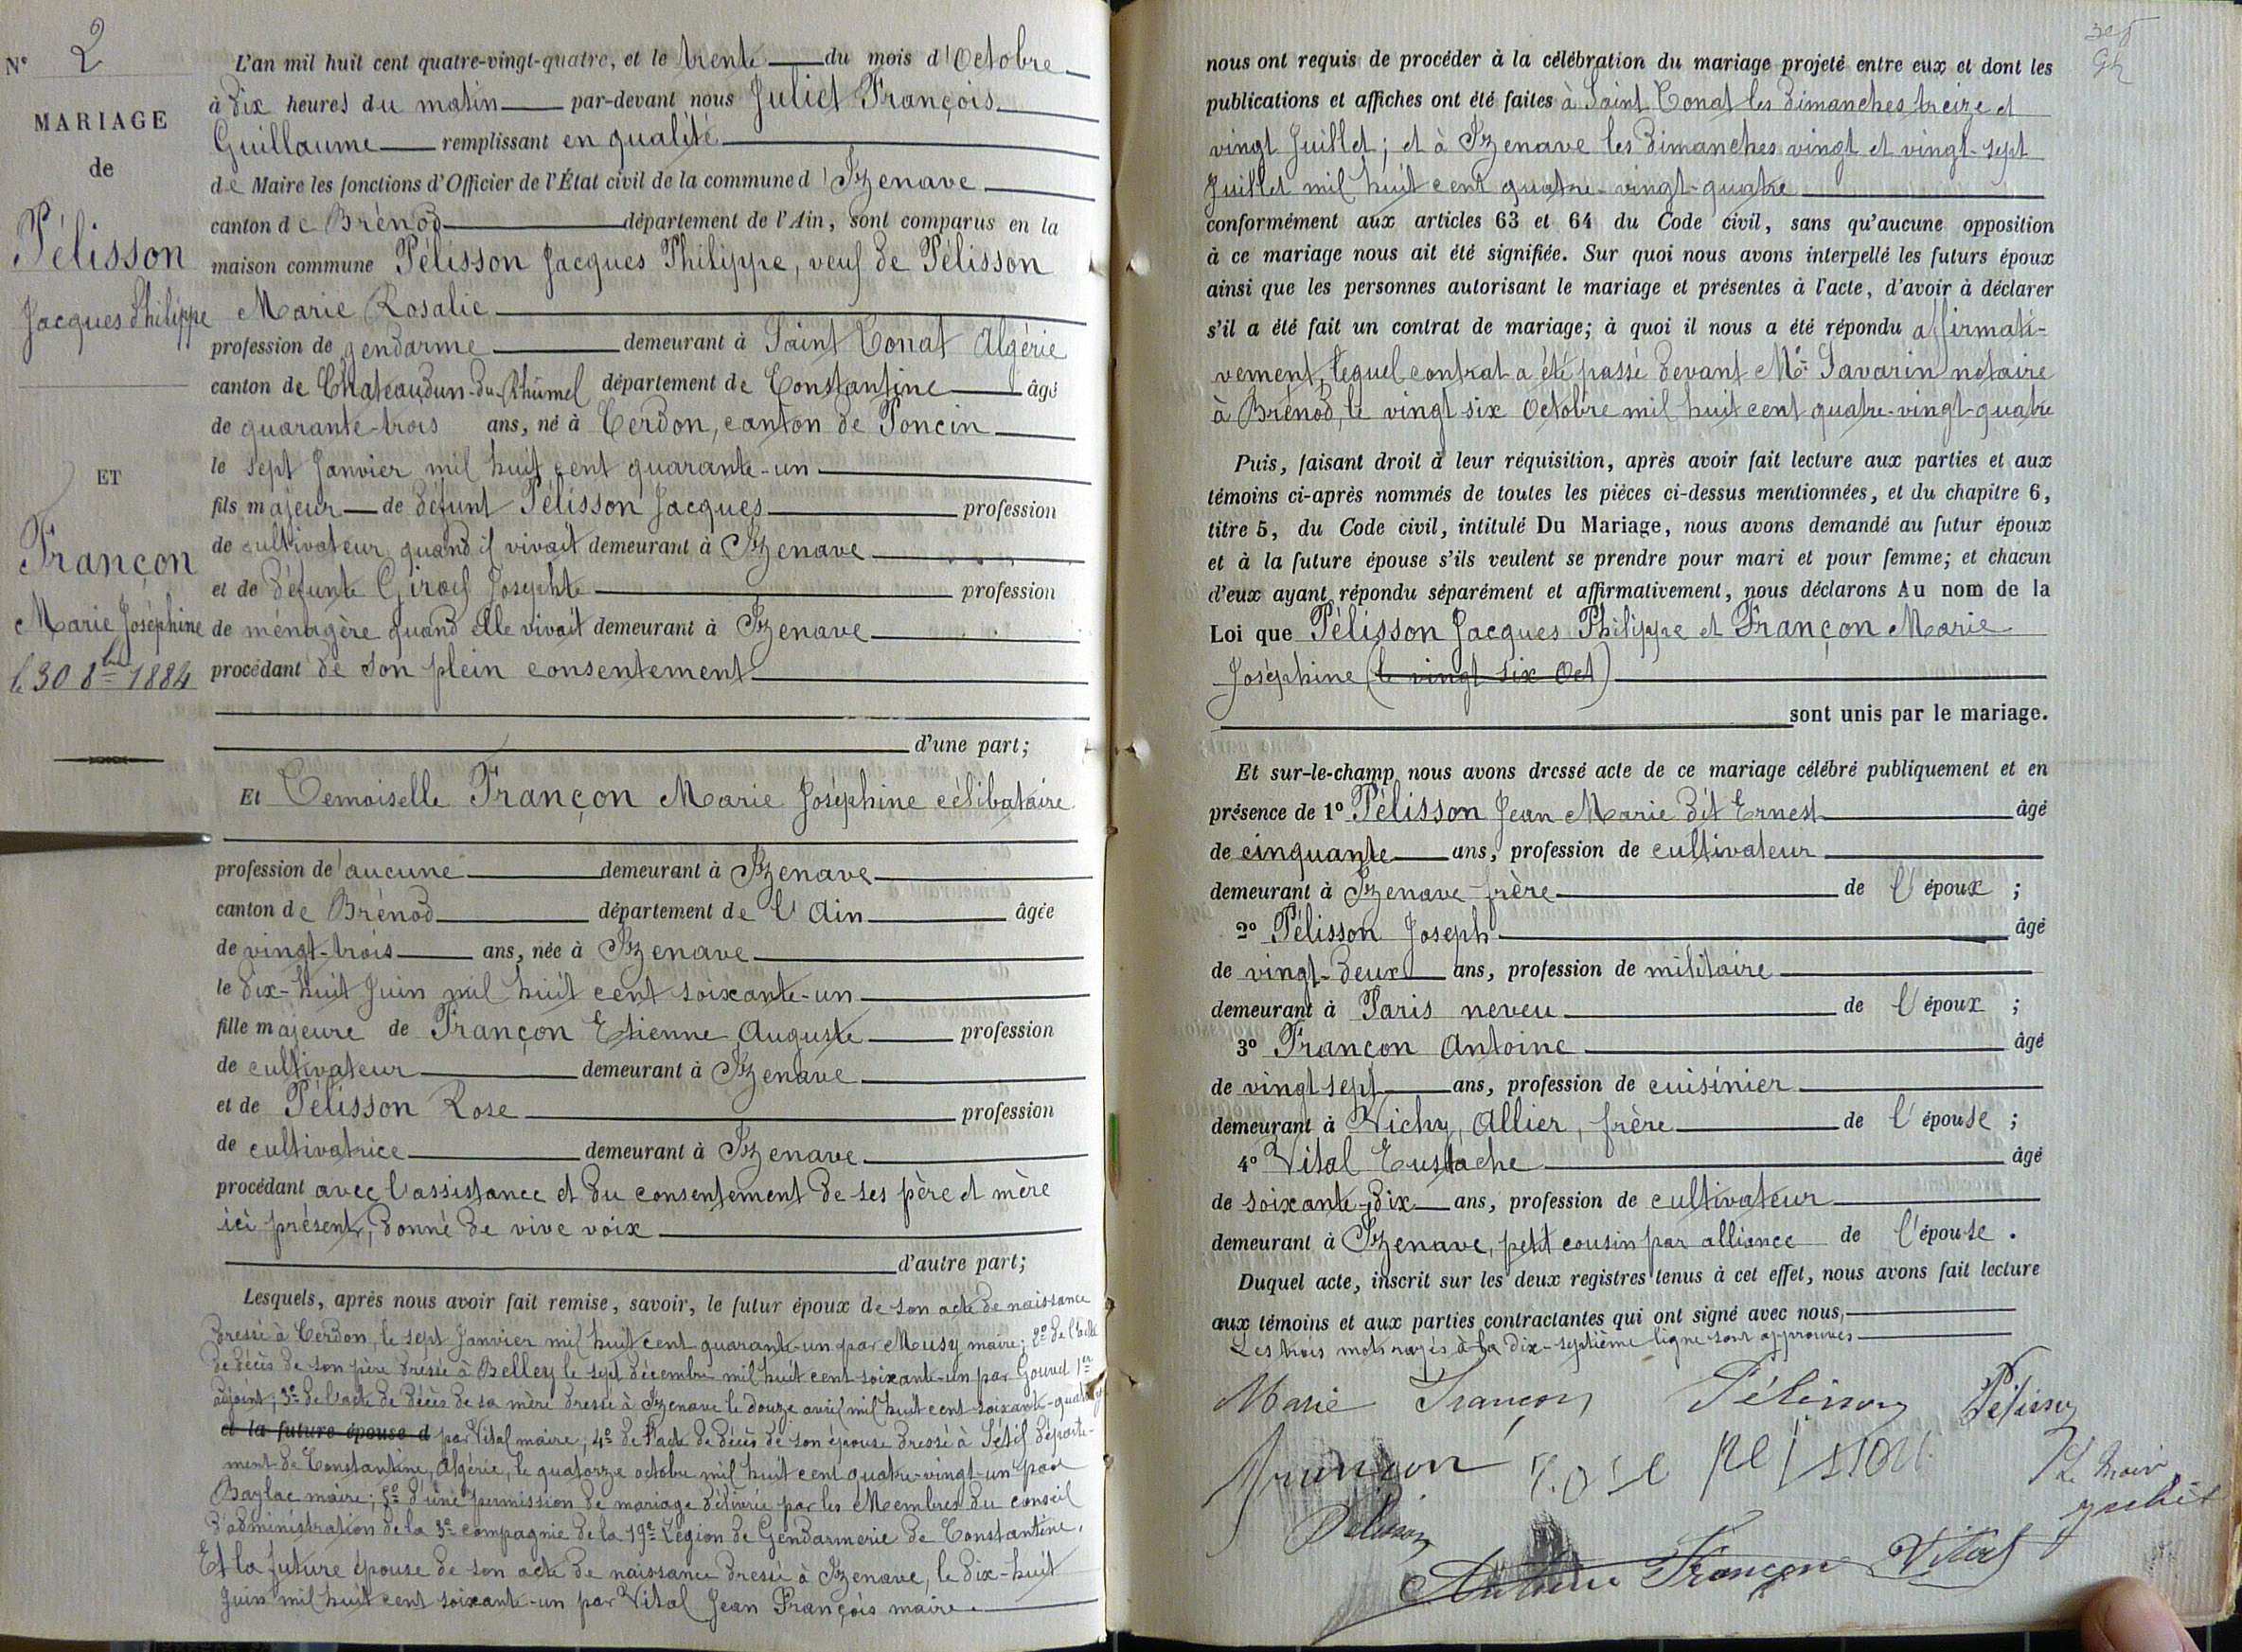 N° 2
MARIAGE
de
Pélisson
Jacques Philippe
ET
Françon
Marie Joséphine
le 30 8bre 1884
L'an mil huit cent quatre-vingt-quatre, et le trente du mois d'Octobre
à dix heures du matin par-devant nous Juliet François
Guillaume remplissant en qualité
de Maire les fonctions d'Officier de l'État civil de la commune d'Izenave
canton de Brénod département de l'Ain, sont comparus en la
maison commune Pélisson Jacques Philippe, veuf de Pélisson
Marie Rosalie
profession de gendarme demeurant à Saint Donat Algérie
canton de Chateaudun-du-Rhumel département de Constantine âgé
de quarante-trois ans, né à Cerdon, canton de Poncin
le sept Janvier mil huit cent quarante-un
fils majeur de défunt Pélisson Jacques profession
de cultivateur quand il vivait demeurant à Izenave
et de défunte Girod Josephte profession
de ménagère quand elle vivait demeurant à Izenave
procédant de son plein consentement
d'une part;
Et Demoiselle Françon Marie Joséphine célibataire
profession de aucune demeurant à Izenave
canton de Brénod département de l'Ain âgée
de vingt-trois ans, née à Izenave
le dix-huit Juin mil huit cent soixante-un
fille majeure de Françon Etienne Auguste profession
de cultivateur demeurant à Izenave
et de Pélisson Rose profession
de cultivatrice demeurant à Izenave
procédant avec l'assistance et du consentement de ses père et mère
ici présent, donné de vive voix
d'autre part;
Lesquels, après nous avoir fait remise, savoir, le futur époux de son acte de naissance
dressé à Cerdon, le sept Janvier mil huit cent quarante-un par Musy maire; 2° de l'acte
de décès de son père dressé à Belley le sept décembre mil huit cent soixante-un par Gouvet 1er
adjoint; 3° de l'acte de décès de sa mère dressé à Izenave le douze avril mil huit cent soixante-quatorze
et la future épouse d par Vital maire; 4° de l'acte de décès de son épouse dressé à Sétif départe-
ment de Constantine, Algérie, le quatorze octobre mil huit cent quatre-vingt-un par
Baylac maire; 5° d'une permission de mariage délivrée par les Membres du conseil
d'administration de la 3e compagnie de la 19e Légion de Gendarmerie de Constantine.
Et la future épouse de son acte de naissance dressé à Izenave, le dix-huit
Juin mil huit cent soixante-un par Vital Jean François maire.
nous ont requis de procéder à la célébration du mariage projeté entre eux et dont les
publications et affiches ont été faites à Saint Donat les dimanches treize et
vingt Juillet; et à Izenave les dimanches vingt et vingt-sept
Juillet mil huit cent quatre-vingt-quatre
conformément aux articles 63 et 64 du Code civil, sans qu'aucune opposition
à ce mariage nous ait été signifiée. Sur quoi nous avons interpellé les futurs époux
ainsi que les personnes autorisant le mariage et présentes à l'acte, d'avoir à déclarer
s'il a été fait un contrat de mariage; à quoi il nous a été répondu affirmati-
vement, lequel contrat a été passé devant Me Savarin notaire
à Brénod, le vingt six Octobre mil huit cent quatre-vingt-quatre
Puis, faisant droit à leur réquisition, après avoir fait lecture aux parties et aux
témoins ci-après nommés de toutes les pièces ci-dessus mentionnées, et du chapitre 6,
titre 5, du Code civil, intitulé Du Mariage, nous avons demandé au futur époux
et à la future épouse s'ils veulent se prendre pour mari et pour femme; et chacun
d'eux ayant répondu séparément et affirmativement, nous déclarons Au nom de la
Loi que Pélisson Jacques Philippe et Françon Marie
Joséphine (le vingt six Oct)
sont unis par le mariage.
Et sur-le-champ nous avons dressé acte de ce mariage célébré publiquement et en
présence de 1° Pélisson Jean Marie dit Ernest âgé
de cinquante ans, profession de cultivateur
demeurant à Izenave frère de l'époux;
2° Pélisson Joseph âgé
de vingt-deux ans, profession de militaire
demeurant à Paris neveu de l'époux;
3° Françon Antoine âgé
de vingt sept ans, profession de cuisinier
demeurant à Vichy, Allier, frère de l'épouse;
4° Vital Eustache âgé
de soixante-dix ans, profession de cultivateur
demeurant à Izenave, petit cousin par alliance de l'épouse.
Duquel acte, inscrit sur les deux registres tenus à cet effet, nous avons fait lecture
aux témoins et aux parties contractantes qui ont signé avec nous,
Les trois mots rayés à la dix-septième ligne sont approuvés
Marie Françon Pélisson Pélisson
françon rose pelisson Le Maire
Pélisson Juliet
Antoine Françon Vital